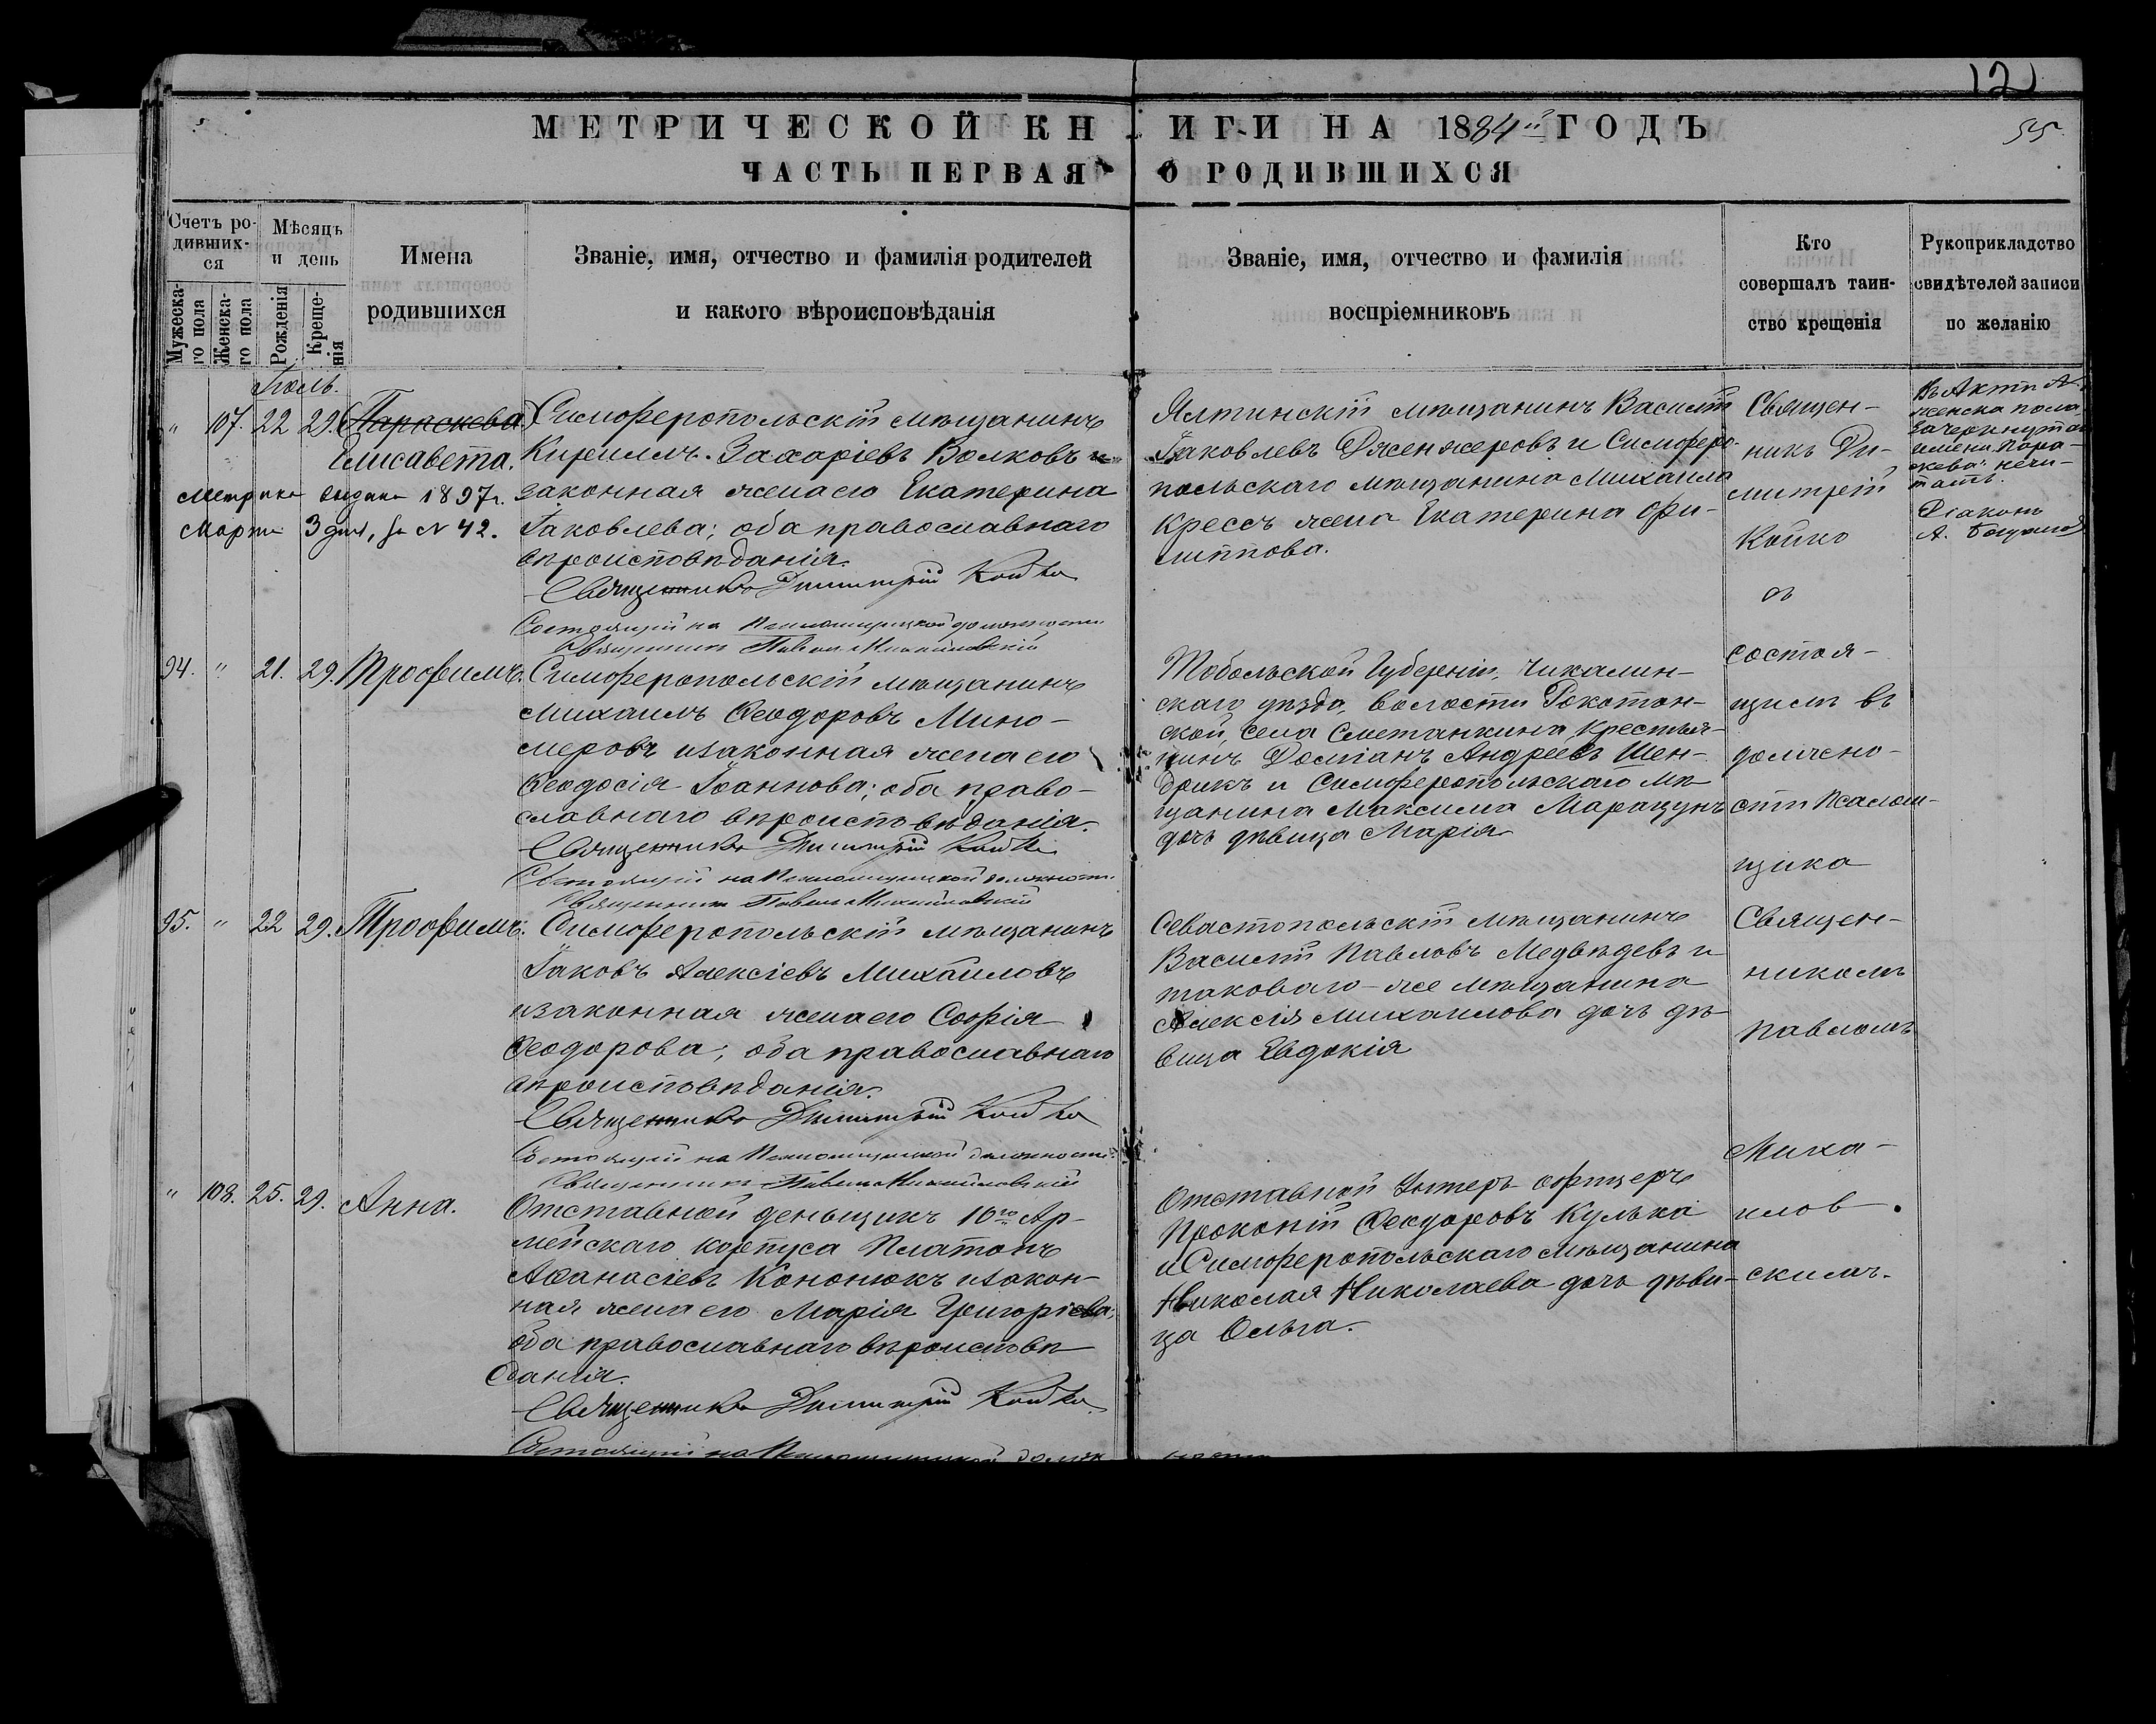 121
МЕТРИЧЕСКОЙ КНИГИ НА 1884й ГОДЪ
55
ЧАСТЬ ПЕРВАЯ О РОДИВШИХСЯ
Счетъ ро-
дивших-
ся
Мужеска-
го пола
Женска-
го пола
Мѣсяцъ
и день
Рожденія
Креще-
нія
Имена
родившихся
Званіе, имя, отчество и фамилія родителей
и какого вѣроисповѣданія
Званіе, имя, отчество и фамилія
воспріемниковъ
Кто
совершалъ таин-
ство крещенія
Рукоприкладство
свидѣтелей записи
по желанію
Іюль.
" 107. 22 29. (Параскева)
Елисавета.
Метрика выдана 1897 г.
Марта 3 дня, за № 42.
Симферопольскій мѣщанинъ
Кириллъ Захаріевъ Волковъ и
законная жена его Екатерина
Іаковлева; оба православнаго
вѣроисповѣданія.
Священникъ Димитрій Койко
Состоящій на Псаломщицкой должности
Священникъ Павелъ Михайловскій
Ялтинскій мѣщанинъ Василій
Іаковлевъ Дженжеровъ и Симферо-
польскаго мѣщанина Михаила
Крессъ жена Екатерина Фи-
липпова.
Священ-
никъ Ди-
митрій
Койко
съ
состоя-
щимъ въ
должно-
сти Псалом-
щика
Священ-
никомъ
Павломъ
Миха-
йлов-
скимъ.
Въ Актѣ №
женска пола
зачеркнутое
имени "Пара-
скева" не чи-
тать.
Діаконъ
А.
94. " 21. 29. Трофимъ.
Симферопольскій мѣщанинъ
Михаилъ Ѳеодоровъ Мино-
меровъ и законная жена его
Ѳеодосія Іоаннова; оба право-
славнаго вѣроисповѣданія.
Священникъ Димитрій Койко
Состоящій на Псаломщицкой должности
Священникъ Павелъ Михайловскій
Тобольской Губерніи, Чикалин-
скаго уѣзда, волости Рокотон-
ской, села Сметанкина Крестья-
нинъ Доміанъ Андреевъ Шен-
дрикъ и Симферопольскаго мѣ-
щанина Максима Марацунъ
дочь дѣвица Марія
95. " 22 29. Трофимъ.
Симферопольскій мѣщанинъ
Іаковъ Алексіевъ Михаиловъ
и законная жена его Софія
Ѳеодорова; оба православнаго
вѣроисповѣданія.
Священникъ Димитрій Койко
Состоящій на Псаломщицкой должности
Священникъ Павелъ Михайловскій
Севастопольскій мѣщанинъ
Василій Павловъ Медвѣдевъ и
таковаго-же мѣщанина
Алексія Михаилова дочь дѣ-
вица Евдокія
" 108. 25. 29. Анна.
Отставной деньщикъ 10го Ар-
мейскаго корпуса Платонъ
Аѳанасіевъ Кононюкъ и закон-
ная жена его Марія Григоріева;
оба православнаго вѣроисповѣ
данія.
Священникъ Димитрій Койко
Состоящій на Псаломщицкой должности
Отставной Унтеръ офицеръ
Прокопій Ѳеодоровъ Кулька
и Симферопольскаго мѣщанина
Николая Николаева дочь дѣви-
ца Ольга.